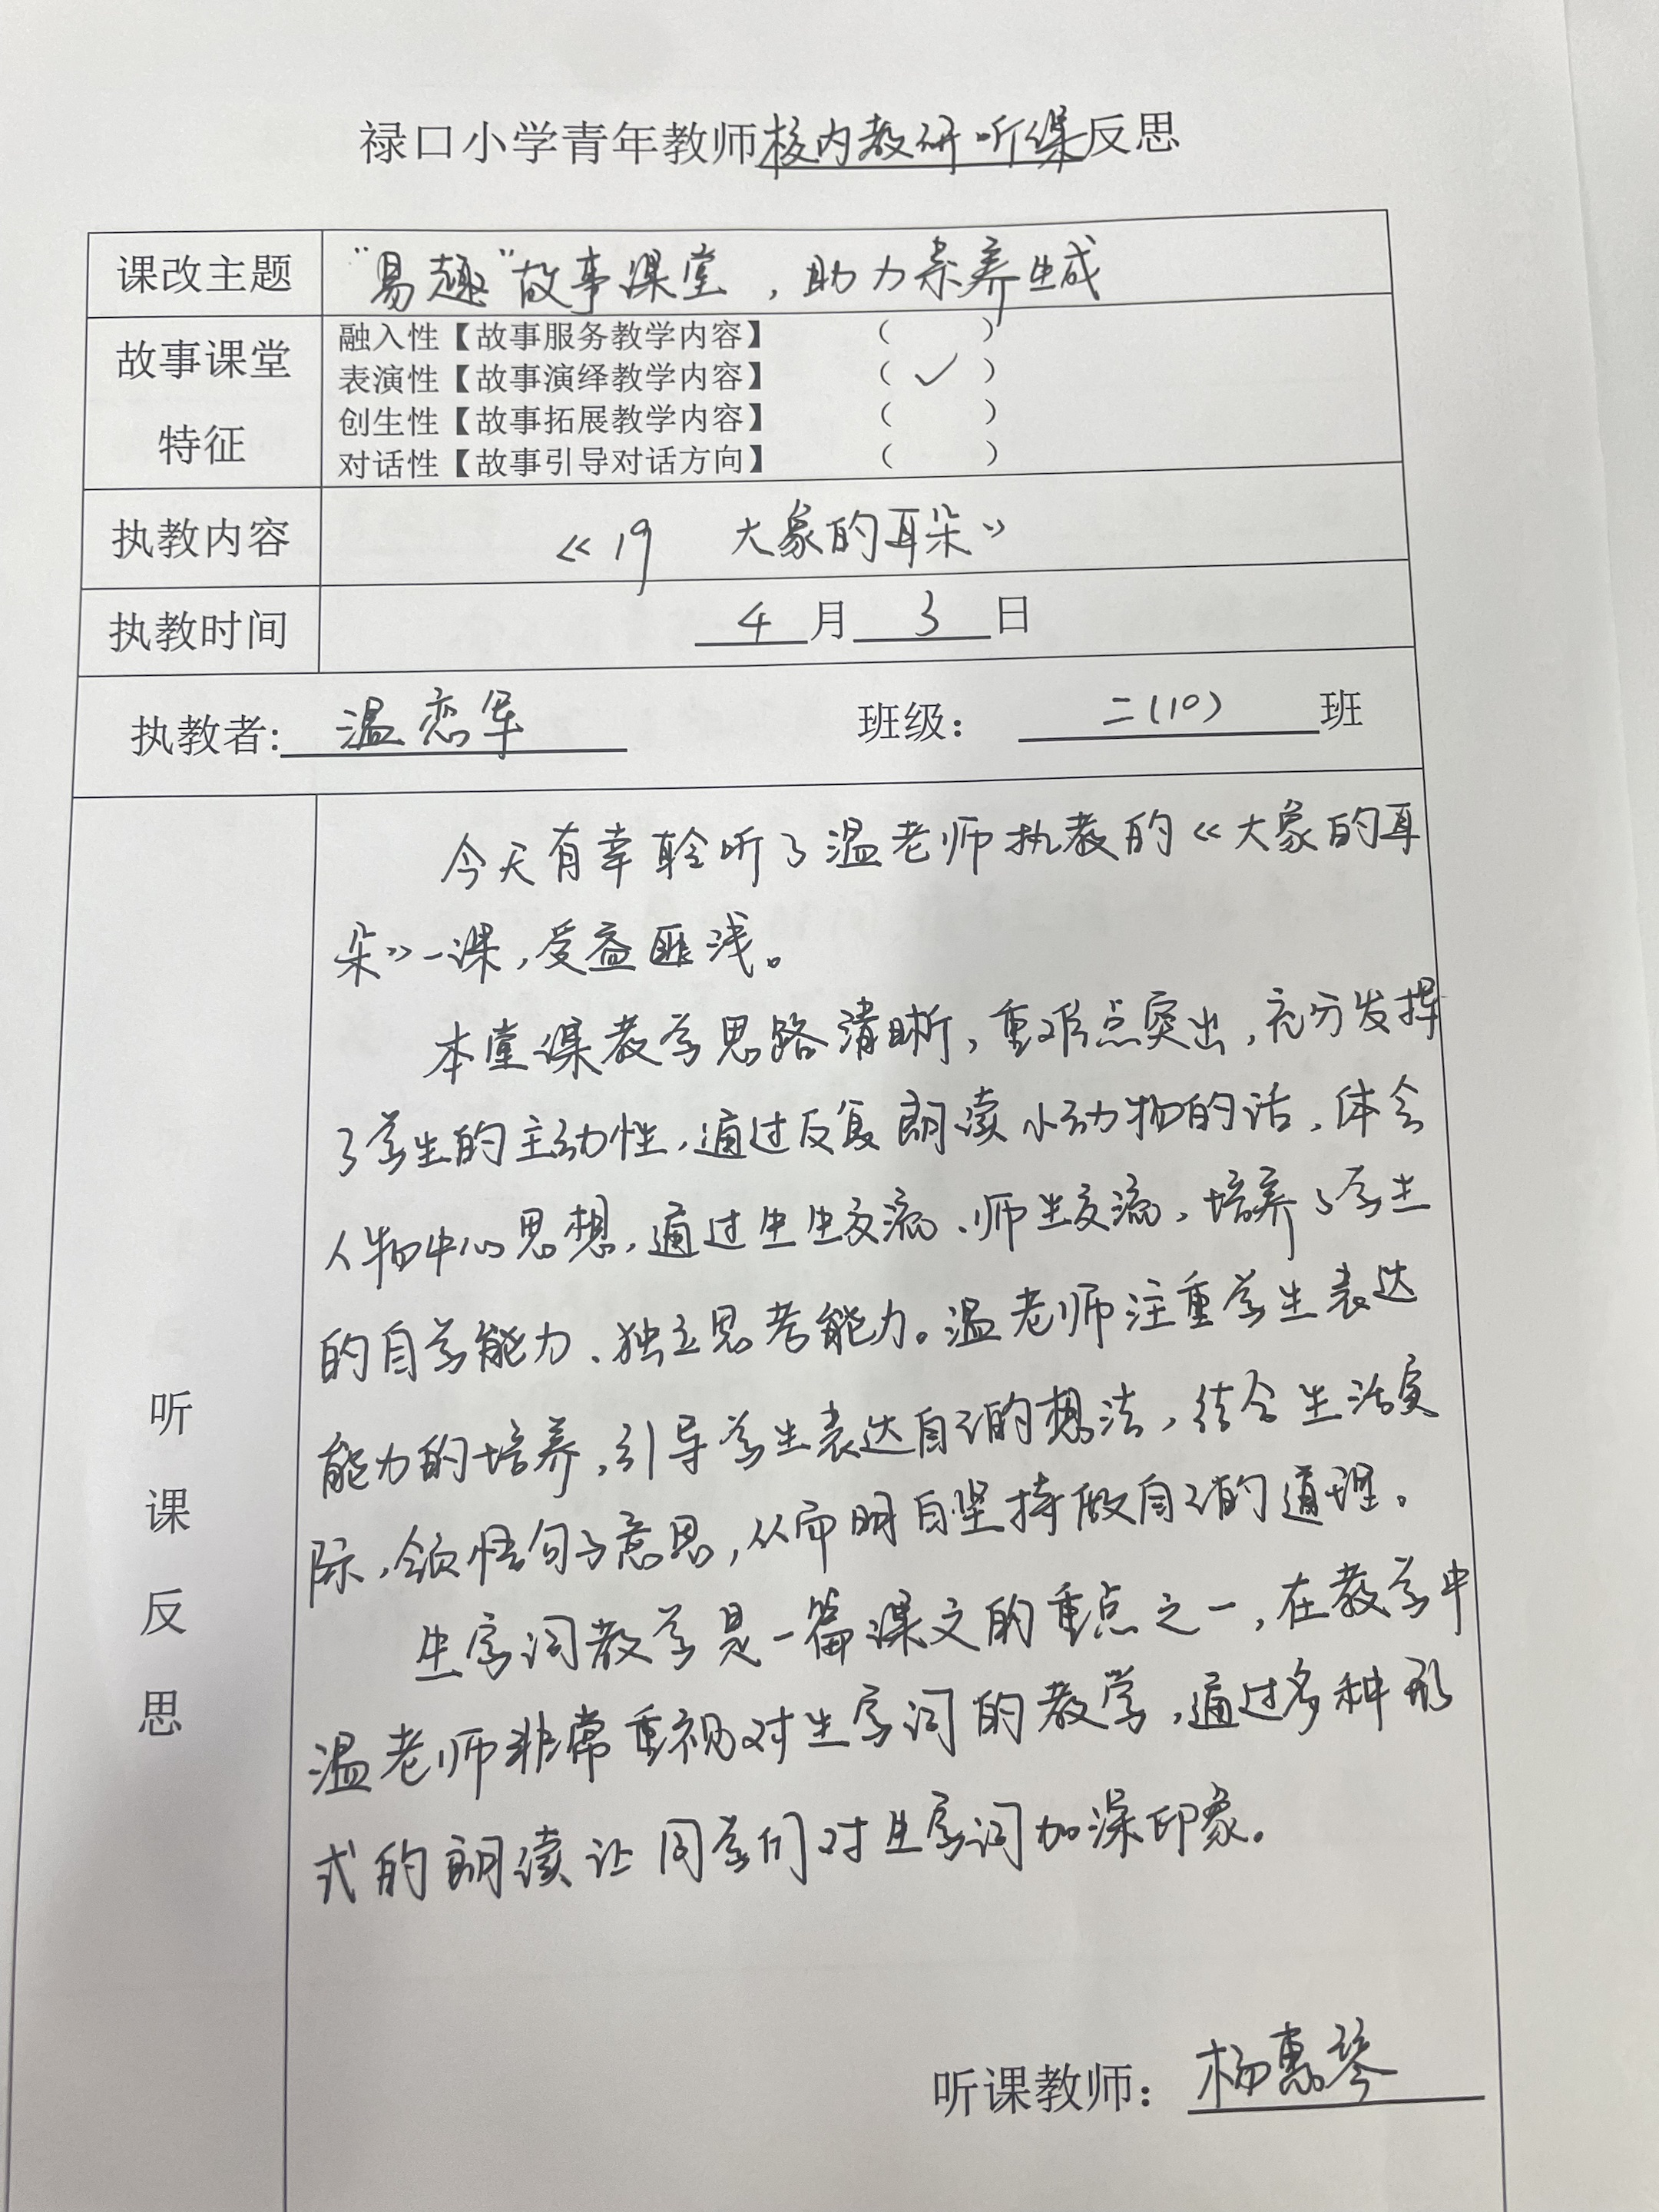 禄口小学青年教师校内教研听课反思
课改主题 “易趣”故事课堂，助力素养生成
故事课堂特征
融入性【故事服务教学内容】 （ ）
表演性【故事演绎教学内容】 （ ✓ ）
创生性【故事拓展教学内容】 （ ）
对话性【故事引导对话方向】 （ ）
执教内容 《19 大象的耳朵》
执教时间 4月3日
执教者: 温恋军 班级： 二（10）班
听课反思
今天有幸聆听了温老师执教的《大象的耳
朵》一课，受益匪浅。
本堂课教学思路清晰，重难点突出，充分发挥
了学生的主动性，通过反复朗读小动物的话，体会
人物中心思想，通过生生交流、师生交流，培养了学生
的自学能力、独立思考能力。温老师注重学生表达
能力的培养，引导学生表达自己的想法，结合生活实
际，领悟句子意思，从而明白坚持做自己的道理。
生字词教学是一篇课文的重点之一，在教学中
温老师非常重视对生字词的教学，通过多种形
式的朗读让同学们对生字词加深印象。
听课教师： 杨惠琴